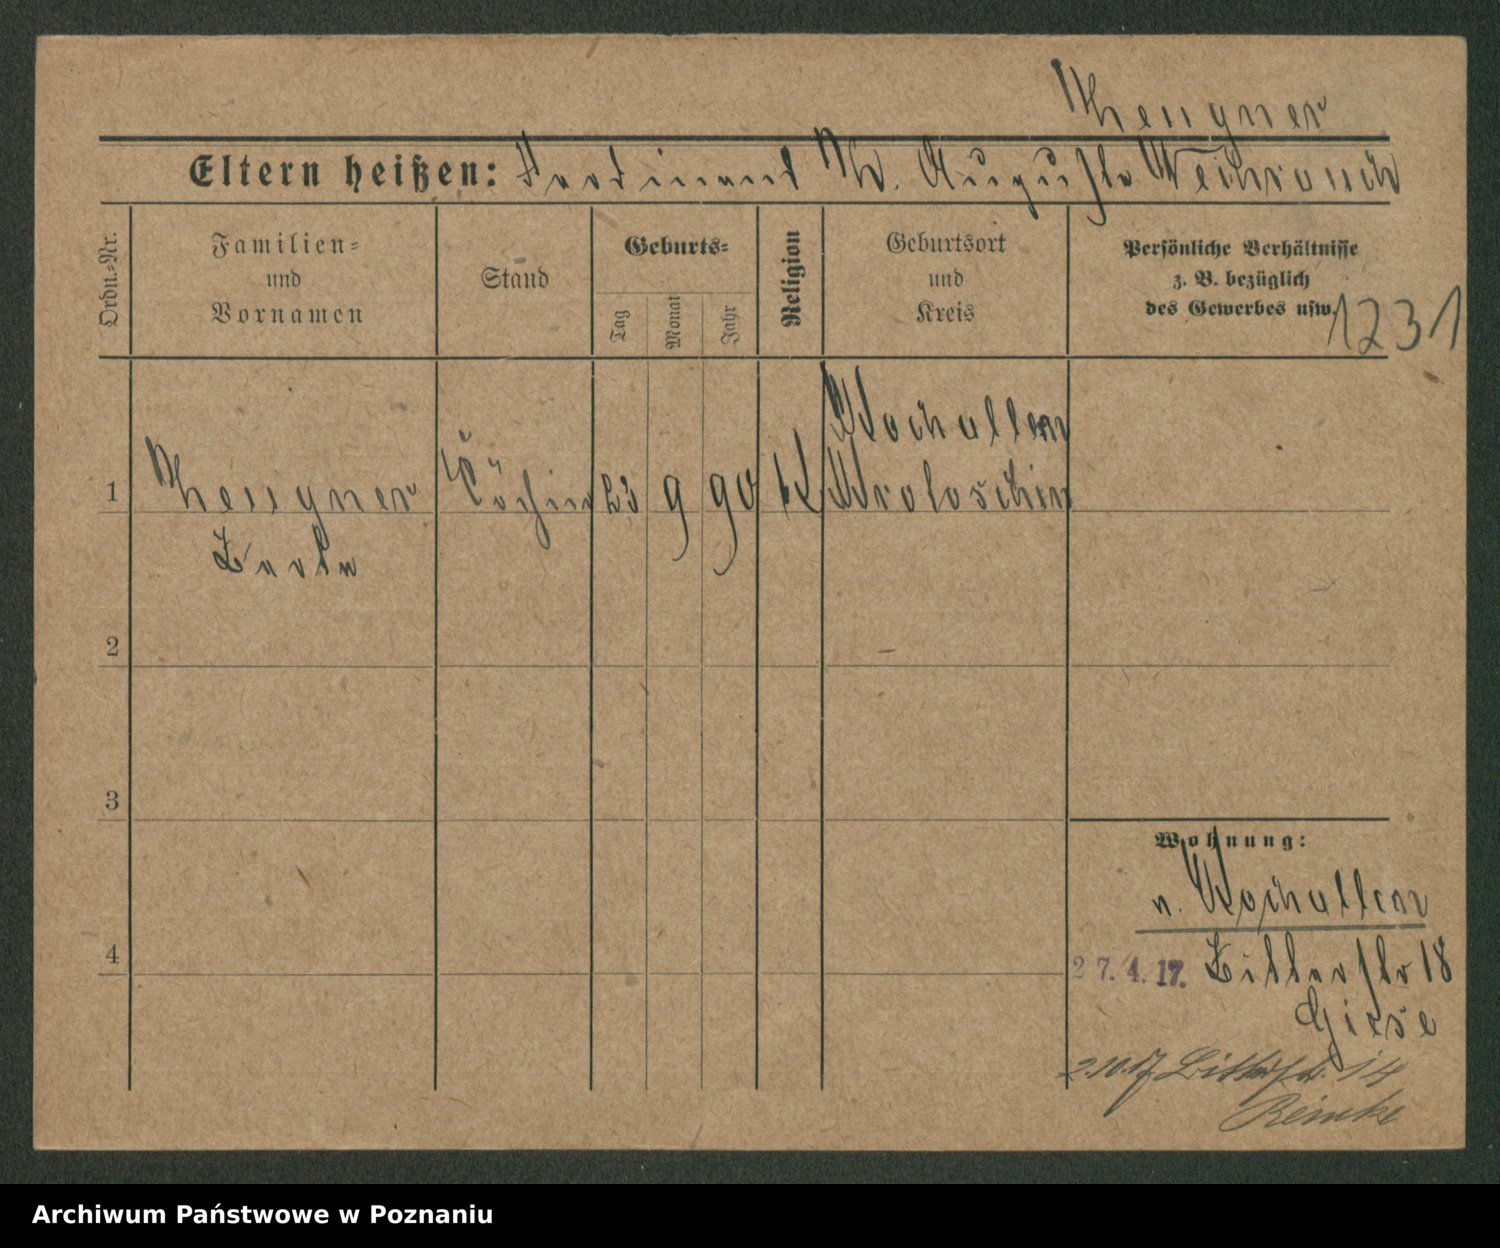 Thengner
Eltern heißen: Ferdinand Th. Auguste Weihrauch
Ordn.=Nr.
Familien=
und
Vornamen
Stand
Geburts=
Tag
Monat
Jahr
Religion
Geburtsort
und
Kreis
Persönliche Verhältnisse
z. B. bezüglich
des Gewerbes usw.
1231
1
Thengner
Köchin
23
9
90
K
Krotoschin
2
3
4
Wohnung:
27. 4. 17.
Ritterstr 18
Giese
2.10.17 Ritterstr. 14
Reincke
Archiwum Państwowe w Poznaniu